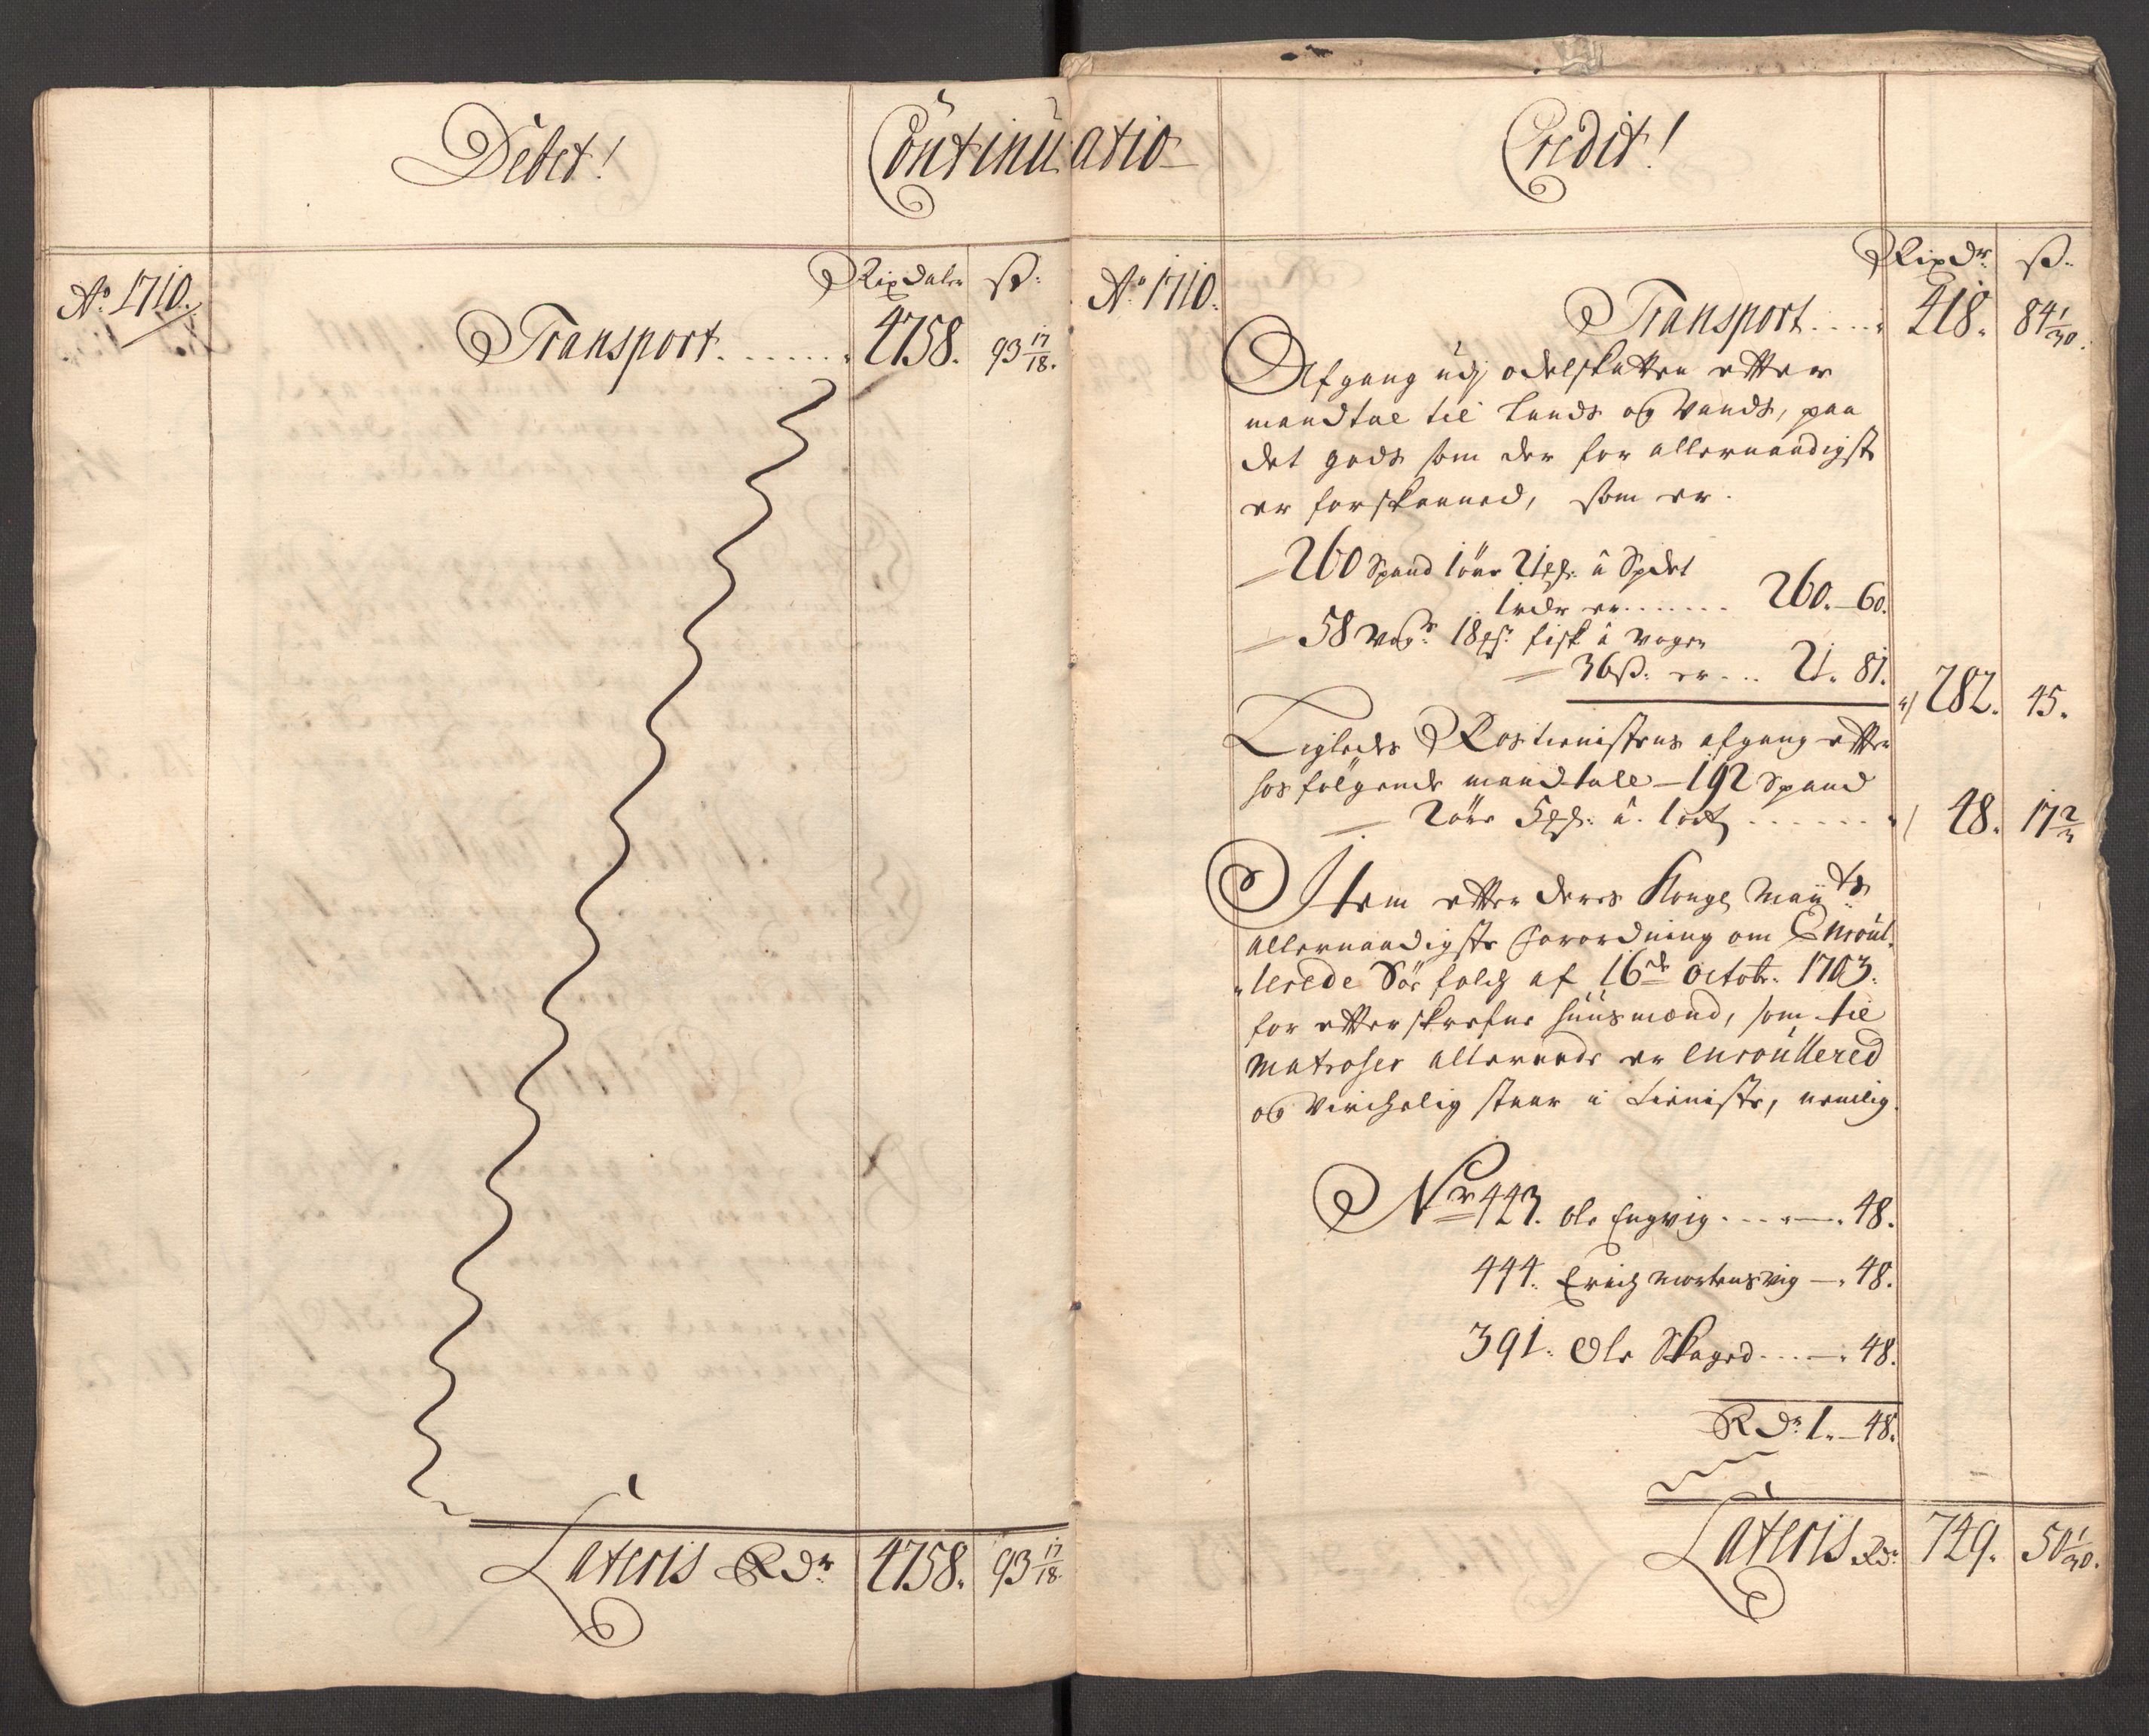 Debet!
Continuatio
Ao. 1710.
Rixdaler ß:
Transport . . . . . . . 4758. 93 17/18.
Lateris Rdr 4758. 93 17/18.
Credit!
Ao. 1710.
Rixdr. ß.
Transport . . . . 418. 84 1/30.
Afgang udj odelskatten etter
mandtal til Lands og Vands, paa
det gods som der for allernaadigst
er forskaaned, som er.
260 Spand 1 öre 21 ℔. â Spdet
1 rdr er . . . . . . . 260. – 60.
58 Vog. 18 ℔. fisk â Vogen
36 ß. er . . . 21. 81.
282. 45.
Ligledes Rostienistens afgang etter
hosfölgende mandtall – 192 Spand
2 öre 5 ℔. â. 1 ort . . . . . . 48. 17 2/3
Item etter deres Kongl Maÿts
allernaadigste forordning om Enroul-
lerede Söe folch af 16de Octobr. 1703.
for etterskrefne huusmænd, som til
Matroser allerede er Enroullered
og Virchelig staar i tieniste, nemlig
Nr 443. Ole Engvig . . . — . 48.
444. Erich Mortensvig — . 48.
391. Ole Skaged . . . — . 48.
Rdr 1. – 48.
Lateris Rdr 749. 50 1/30.